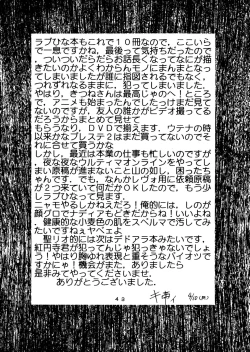 ラブひな本もこれで１０冊なので、ここいら
で一息ですかね、最後って気持ちだったので
、ついついだらだらお話長くなってなにが描
きたいのかよくわからんモノにまんまとなっ
てしまいましたが誰に指図されるでもなく、
つれずれなるままに、犯ってしまいました。
やはり、きつねさんは最高じゃのへ！ところ
で、アニメも始まったんでしたっけまだ見て
ないのですが、友人の誰かがビデオ撮ってる
だろうからまとめて見せて
もらうなり、ＤＶＤで揃えます、ウテナの時
以来かなプレステ２はまだ買ってないのでそ
れに合せて買うかな
しかし、最近は本業の仕事も忙しいのですが
、夜な夜なリルティマオンラインをやってし
まい原稿が進まないこと山の如し、困ったち
ゃんです、でも、なんかレヴォ用に依頼原稿
が２つ来ていて何だかＯＫしたので、もう少
しラブひなって見ます、
ニャモやるしかねえだろ！俺的には、しのが
顔グロでナディアもどきだからね！いいよね
、健康的な小麦色の肌をスペルマで汚してみ
たいですねぇヤベェよ
聖リオ的には次はデドアラ本みたいです、
紅円寺君が犯ってんじゃ犯っきゃないでしょ
う！やはり胸ゆれ表現と重そうなバイオツで
すかにゃ！機会がまた、ありましたら
是非みてやってくださいませ、
ありがとうございました。
４３